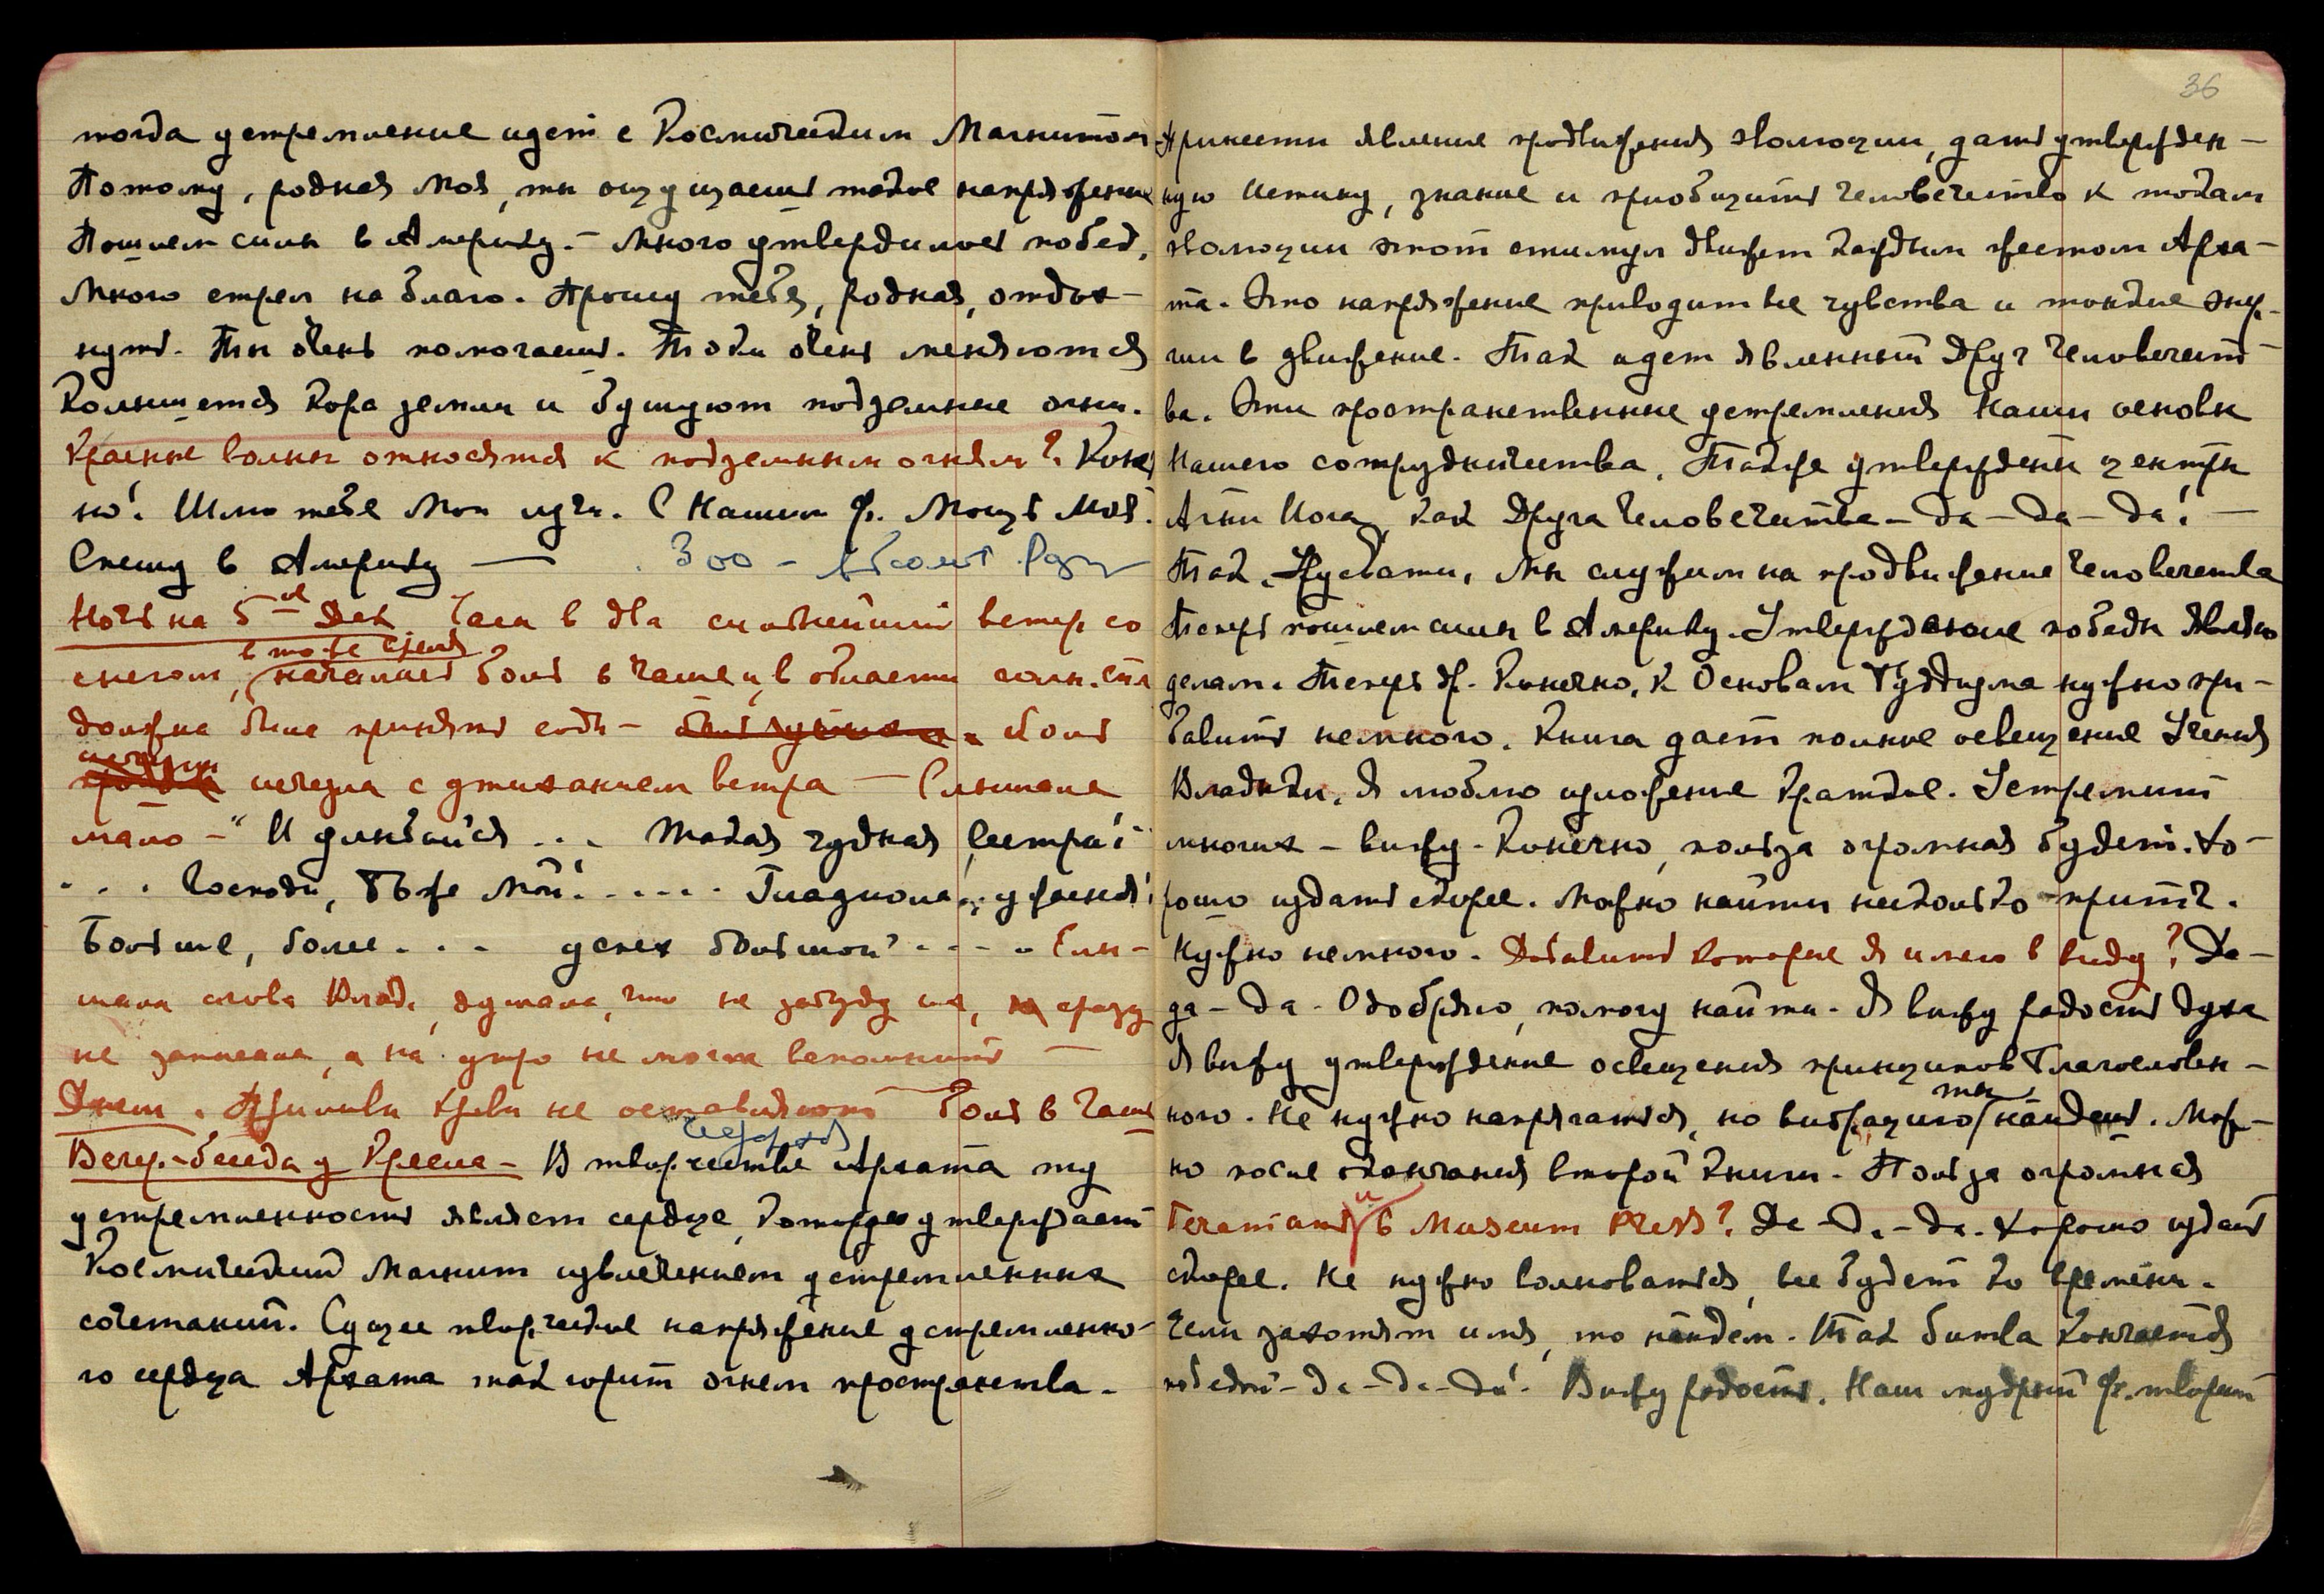 тогда устремление идет с Космическим Магнитом.
Потому, родная моя, ты ощущаешь такое напряжение
Пошлем силы в Америку. – Много утвердилось побед,
Много стрел на благо. Прошу тебя, родная, отдох-
нуть. Ты очень помогаешь. Токи очень меняются
Колышется Кора земли и бушуют подземные огни.
Красные волны относятся к подземным огням? Конеч
но! Шлю тебе Мои лучи. С Нашим Ф. Мощь Моя.
Спешу в Америку —
Ночь на 5-ое Дек. Часа в два сильнейший ветер со
снегом, в то же время началась боль в чаше и в области солн. спл
должна была принять соды – боль
исчезла с утиханием ветра — Слышала
мало – " И улыбайся ... Такая чудная сестра!
... Господи, Боже Мой! ..... Гладиола, ужасна!
Больше, более ... успех большой ..... Слы-
шала слова Влад., думала, что не забуду их, сразу
не записала, а на утро не могла вспомнить —
Днем. Приливы крови не оставляют Боль в Чаше
Вечер – беседа у Кресла – В творчестве Архата ту
устремленность являет сердце, которое утверждает
Космический Магнит извлечением устремленных
сочетаний. Сущее творческое напряжение устремленно-
го сердца Архата так горит огнем пространства.
36
Принести явление продвижения эволюции, дать утвержден-
ную Истину, знание и приобщить человечество к токам
эволюции этот стимул движет каждым жестом Арха-
та. Это напряжение приводит все чувства и тонкие энер-
гии в движение. Так идет явленный Друг Человечест-
ва. Эти пространственные устремления Наши основы
Нашего сотрудничества. Также утверждены центры
Агни Йога, как Друга Человечества – да – да – да! —
Так, Урусвати, Мы служим на продвижение Человечества
Теперь пошлем силы в Америку. Утверждение победы являю
делам. Теперь др. Конечно, к Основам Буддизма нужно при-
бавить немного. Книга дает полное освещение Учения
Владыки. Я люблю изложение краткое. Устремит
многих – вижу. Конечно, польза огромная будет. Хо-
рошо издать скорее. Можно найти несколько притч.
Нужно немного. Добавить которые я имею в виду? Да –
да – да. Одобряю, помогу найти. Я вижу радость духа
Я вижу утверждение освещения принципов Благословен-
ного. Не нужно напрягаться, но вибрацию ты найдешь. Мож-
но после окончания второй книги. Польза огромная
Печатать и в Museum Press? Да – да – да. Хорошо издать
скорее. Не нужно волноваться, все будет ко времени.
Если захотят имя, то найдем. Так битва кончается
победой – да – да – да! Вижу радость. Наш мудрый Ф. творит